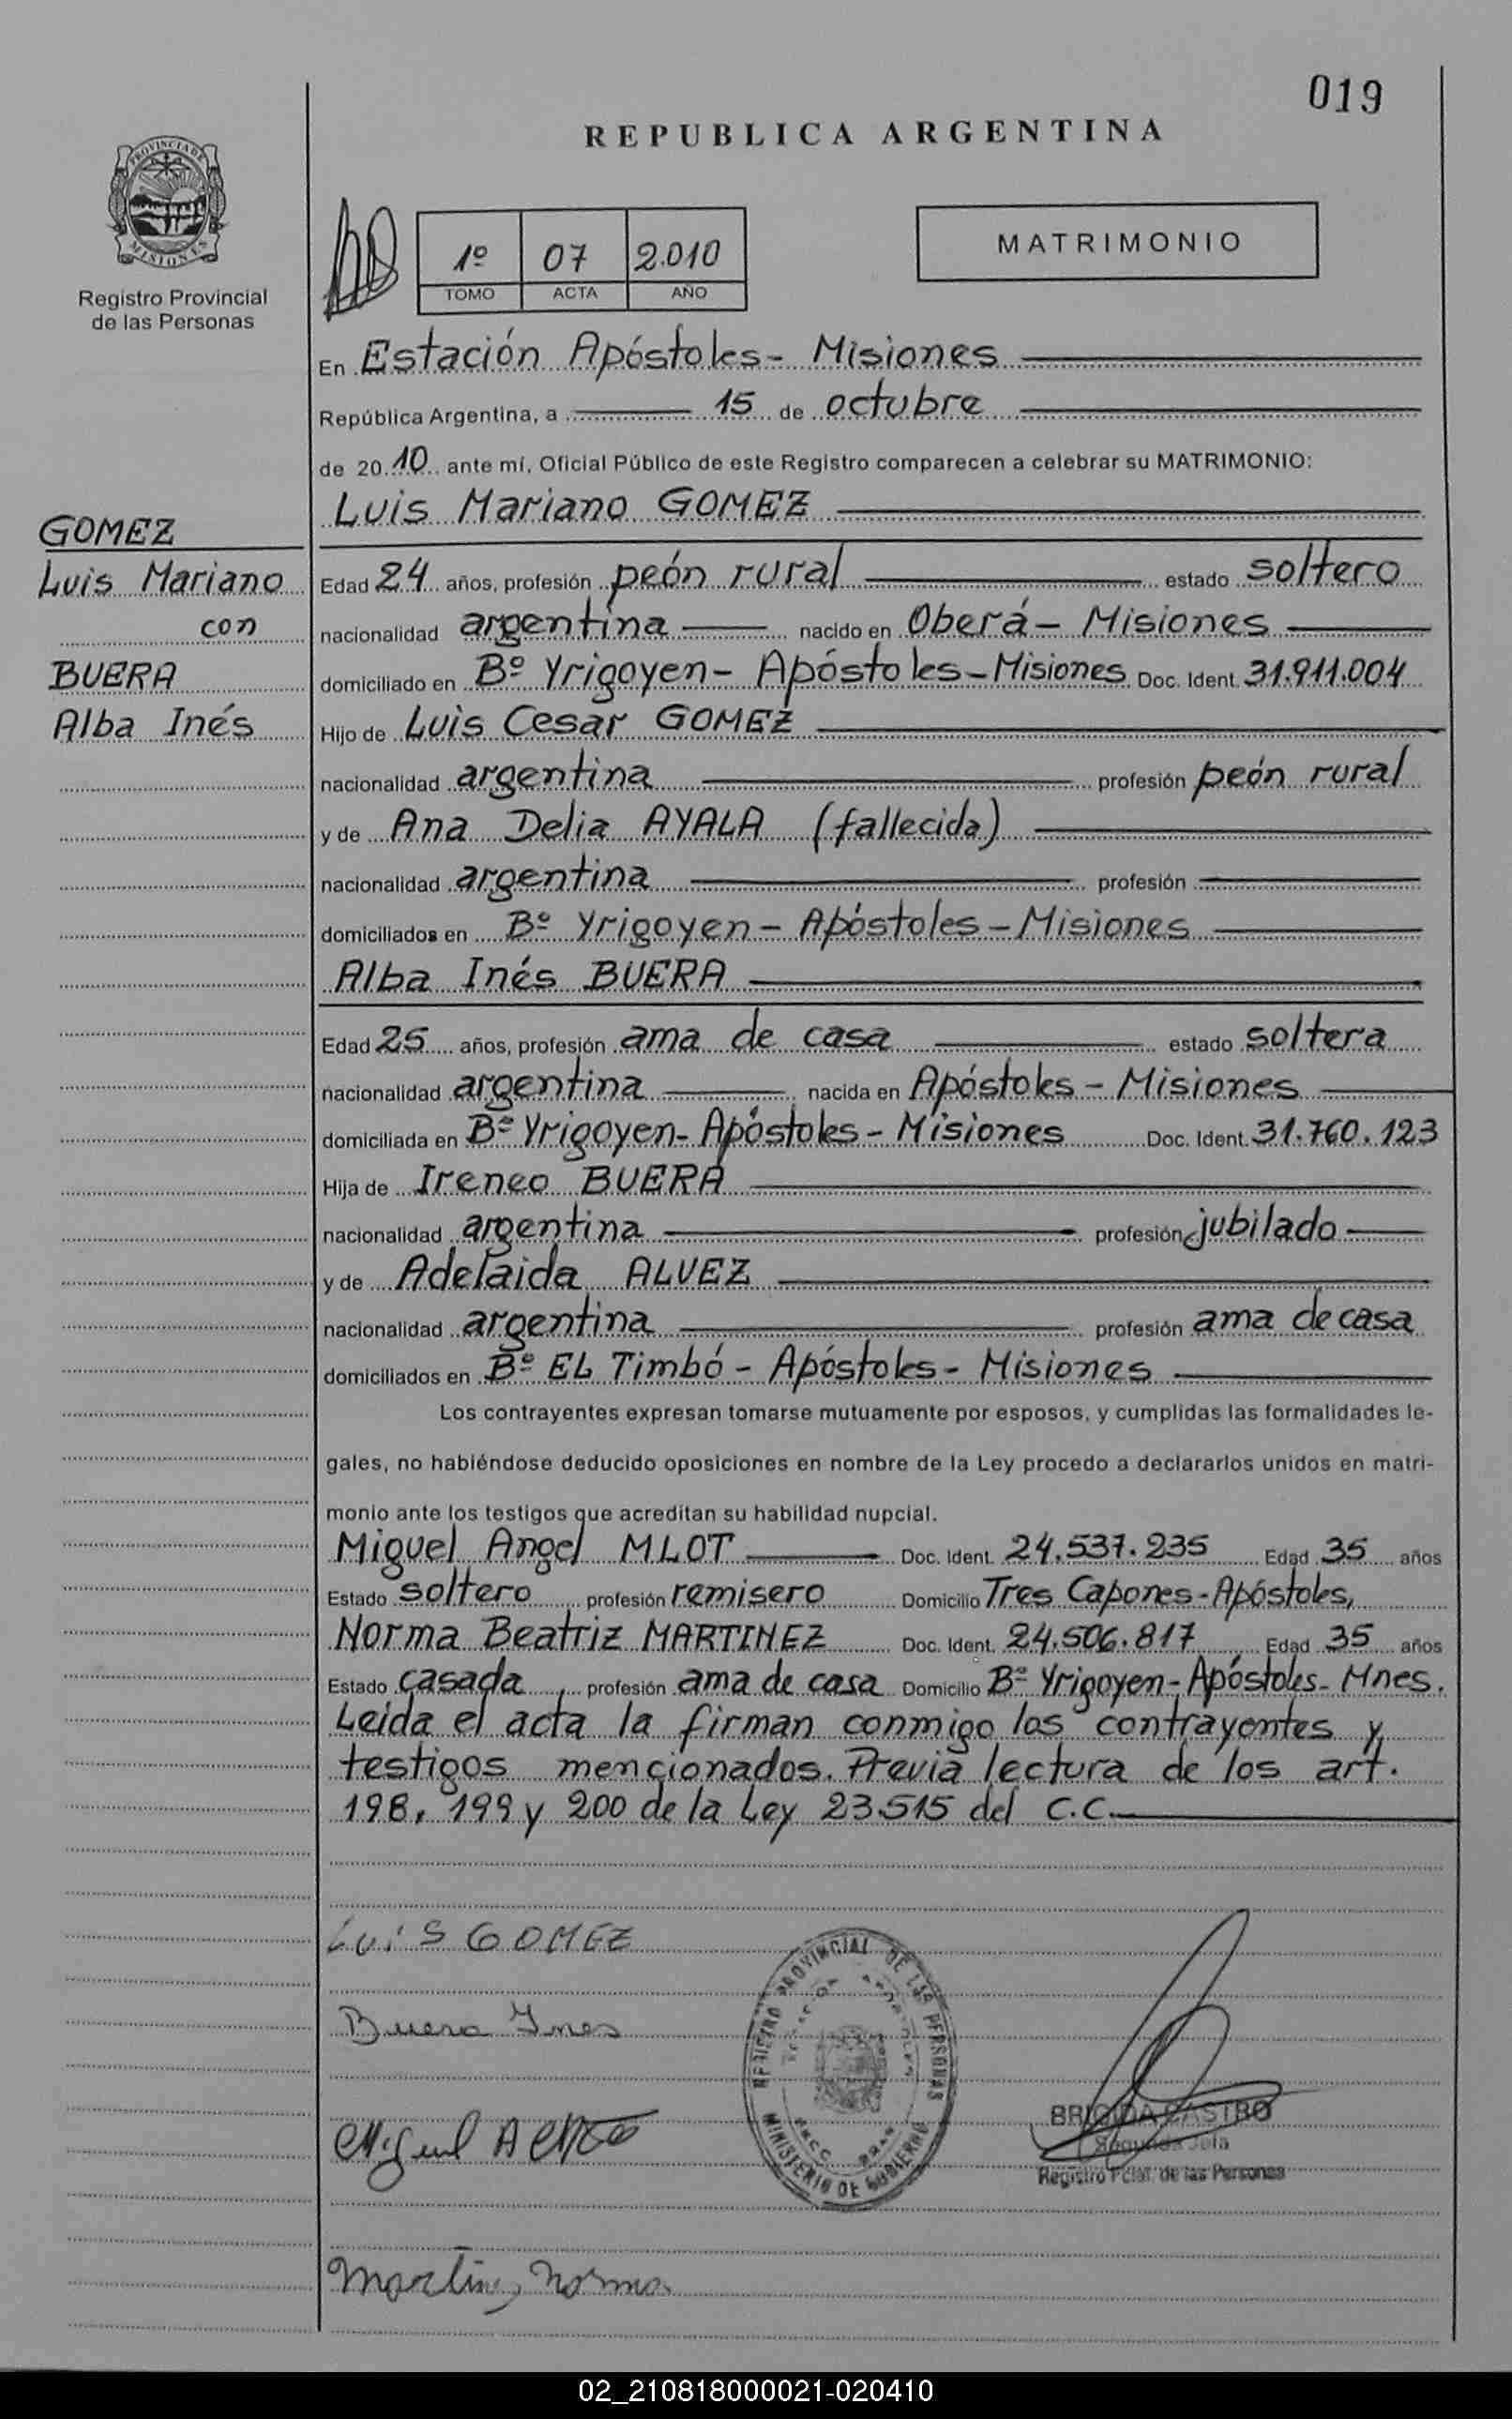 019
REPUBLICA ARGENTINA
PROVINCIA DE
MISIONES
Registro Provincial
de las Personas
1º 07 2.010
TOMO ACTA AÑO
MATRIMONIO
En Estación Apóstoles- Misiones
República Argentina, a 15 de octubre
de 20 10 ante mí, Oficial Público de este Registro comparecen a celebrar su MATRIMONIO:
GOMEZ
Luis Mariano
con
BUERA
Alba Inés
Luis Mariano GOMEZ
Edad 24 años, profesión peón rural estado soltero
nacionalidad argentina nacido en Oberá- Misiones
domiciliado en Bº Yrigoyen- Apóstoles-Misiones Doc. Ident. 31.911.004
Hijo de Luis Cesar GOMEZ
nacionalidad argentina profesión peón rural
y de Ana Delia AYALA (fallecida)
nacionalidad argentina profesión
domiciliados en Bº Yrigoyen- Apóstoles-Misiones
Alba Inés BUERA
Edad 25 años, profesión ama de casa estado soltera
nacionalidad argentina nacida en Apóstoles- Misiones
domiciliada en Bº Yrigoyen- Apóstoles- Misiones Doc. Ident. 31.760.123
Hija de Ireneo BUERA
nacionalidad argentina profesión jubilado
y de Adelaida ALVEZ
nacionalidad argentina profesión ama de casa
domiciliados en Bº EL Timbó- Apóstoles- Misiones
Los contrayentes expresan tomarse mutuamente por esposos, y cumplidas las formalidades le-
gales, no habiéndose deducido oposiciones en nombre de la Ley procedo a declararlos unidos en matri-
monio ante los testigos que acreditan su habilidad nupcial.
Miguel Angel MLOT Doc. Ident. 24.537.235 Edad 35 años
Estado soltero profesión remisero Domicilio Tres Capones-Apóstoles,
Norma Beatriz MARTINEZ Doc. Ident. 24.506.817 Edad 35 años
Estado casada, profesión ama de casa Domicilio Bº Yrigoyen- Apóstoles- Mnes.
Leida el acta la firman conmigo los contrayentes y
testigos mencionados. Previa lectura de los art.
198, 199 y 200 de la Ley 23.515 del C.C.
Luis GOMEZ
Buera Ines
Miguel A
Martinez Norma
REGISTRO PROVINCIAL DE LAS PERSONAS
MINISTERIO DE GOBIERNO
BRIGIDA CASTRO
Segunda Jefa
Registro Pcial. de las Personas
02_210818000021-020410